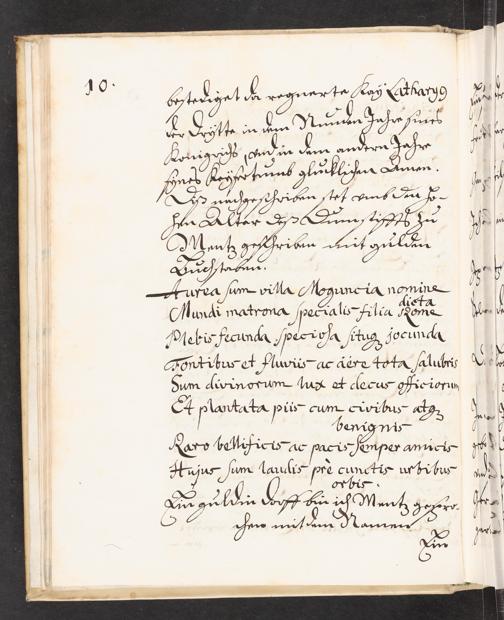 10.
bestediget da regnerte Kay Lotharyg
der Drytte in dem Nunden Jahre sines
Konigrichs, und in dem andern Jahre
synes Keysertumb glucklichen Amen.
Dyß nachgeschriben stet umb den ho-
hen Alter deß Dumstiffts zu
Mentz geschriben mit gulden
Buchstaben.
Aurea sum villa Moguncia nomine
dicta
Mundi matrona specialis filia Rome
Plebis fecunda speciosa situq jocunda
Fontibus et fluviis ac aëre tota salubris
Sum divinorum lux et decus officiorum
Et plantata piis cum civibus atq
benignis
Raro bellificis ac pacis semper amicis
Hujus sum laudis pre cunctis urbibus
orbis.
Ein guldin dorff bin ich Mentz gespro-
chen mit dem Namen
Ein